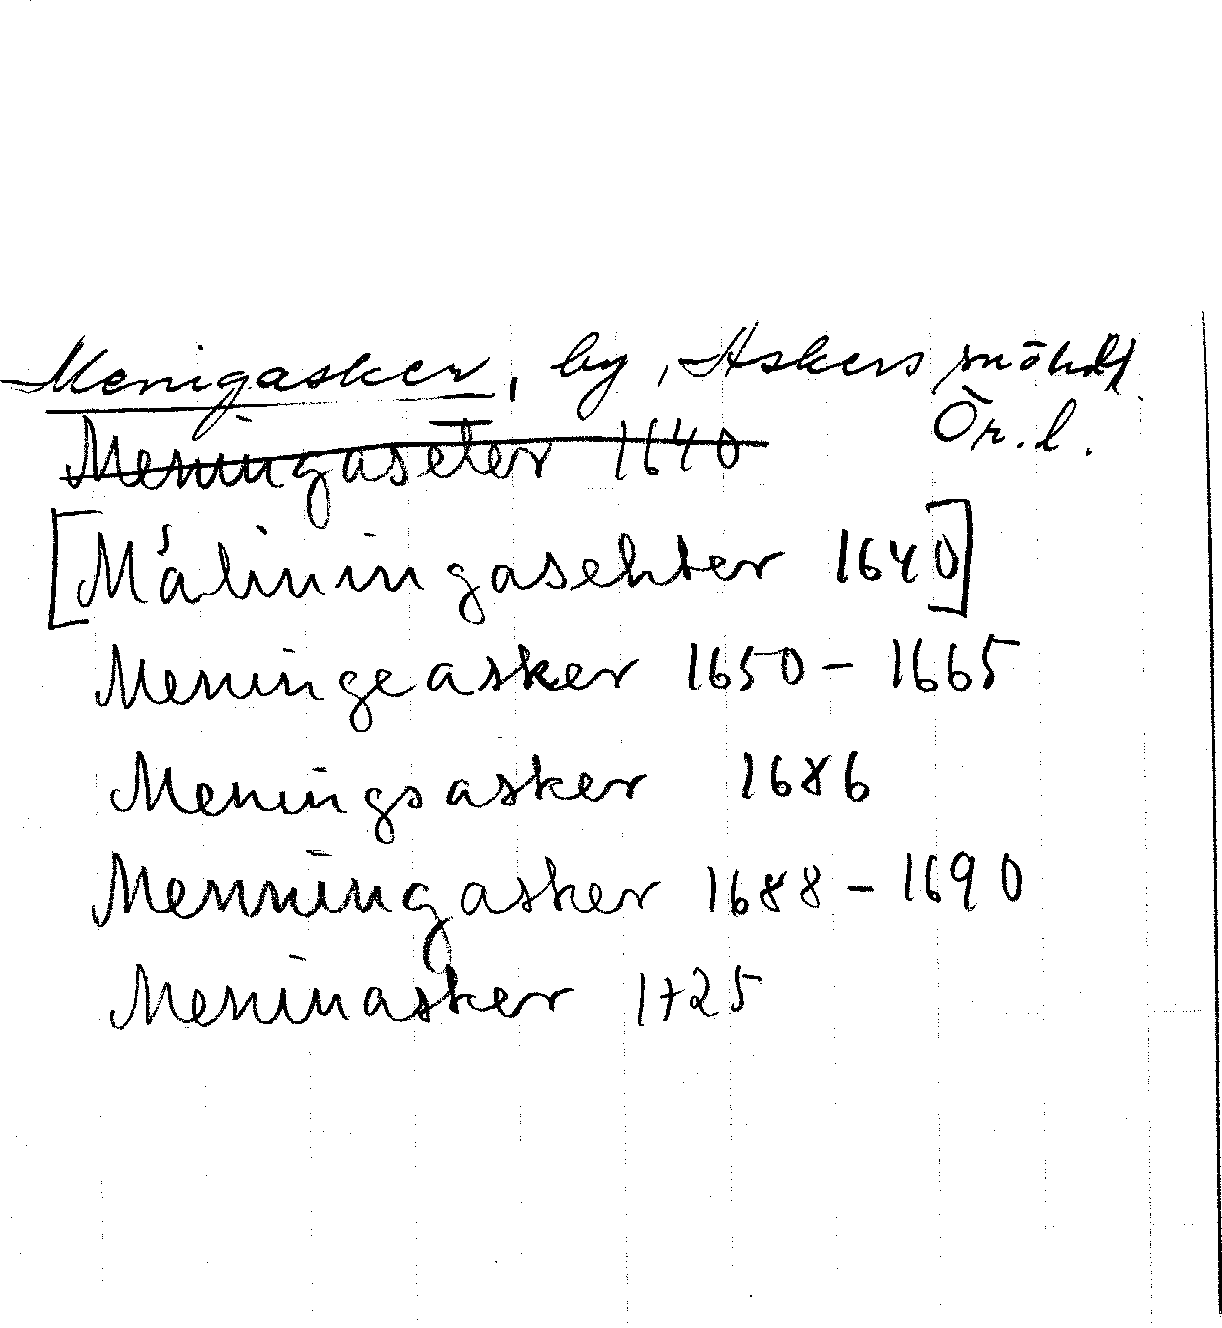 Menigasker, by, Askers sn o hd
Ör. l.
Meningaseter 1640
[Måliningasehter 1640]
Meningeasker 1650 - 1665
Meningsasker 1686
Menningasker 1688 - 1690
Meninasker 1725